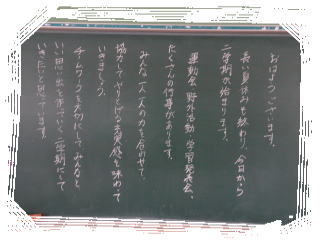 おはようございます。
長い夏休みも終わり、今日から
二学期が始まります。
運動会、野外活動、学習発表会、
たくさんの行事があります。
みんな一人一人の力を合わせて、
協力してやりとげる充実感を味わって
いきましょう。
チームワークを大切にして、みんなと
いい思い出を作っていく二学期にして
いきたいと思っています。